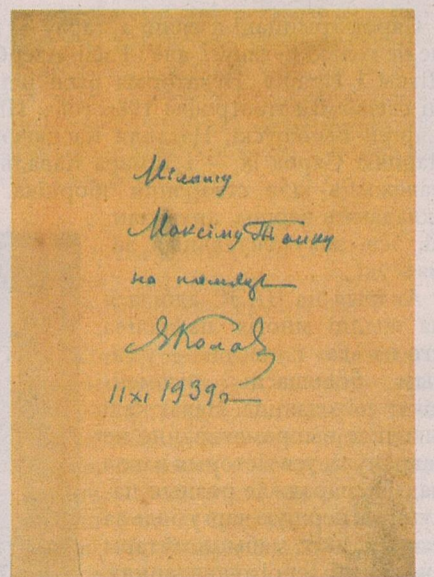 Мілому
Максіму Танку
на памяць
ЯКолас
11 XI 1939 г.